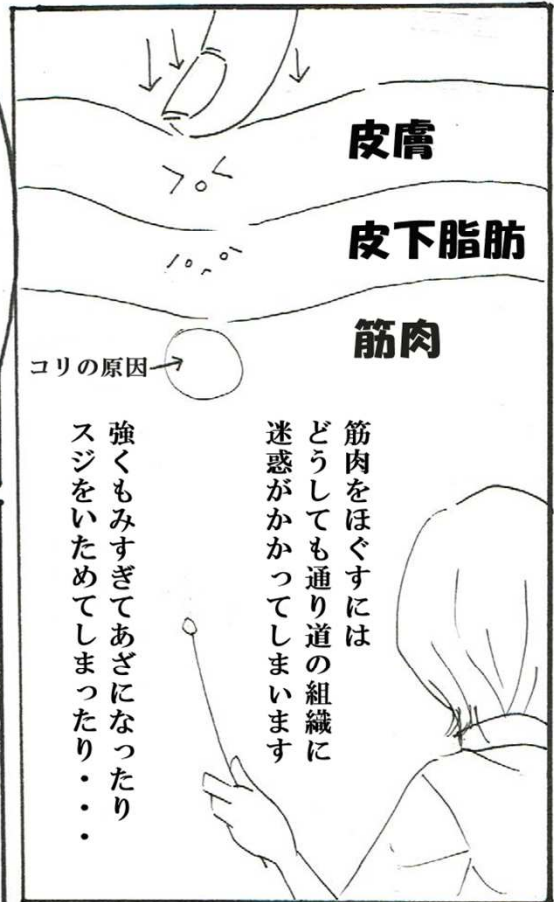 皮膚
皮下脂肪
筋肉
コリの原因
筋肉をほぐすには
どうしても通り道の組織に
迷惑がかかってしまいます
強くもみすぎてあざになったり
スジをいためてしまったり・・・・